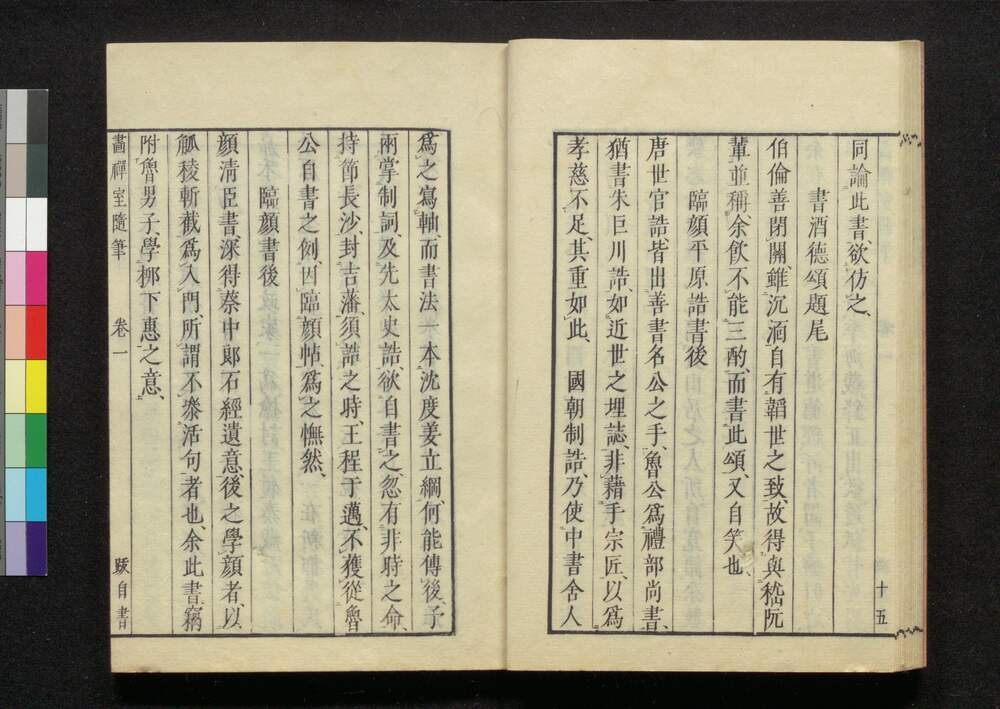 同論此書、欲仿之、
書酒德頌題尾
伯倫善閉關、雖沉湎自有韜世之致、故得與嵇阮
輩並稱、余飲不能三酌、而書此頌、又自笑也、
臨顔平原誥書後
唐世官誥皆出善書名公之手、魯公爲禮部尚書、
猶書朱巨川誥、如近世之埋誌、非藉手宗匠、以爲
孝慈不足、其重如此、 國朝制誥、乃使中書舍人
十五
爲之寫軸、而書法一本沈度姜立綱、何能傳後、予
兩掌制詞、及先太史誥、欲自書之、忽有非時之命、
持節長沙、封吉藩、須誥之時、王程于邁、不獲從魯
公自書之例、因臨顔帖、爲之憮然、
臨顔書後
顔清臣書、深得蔡中郎石經遺意、後之學顔者、以
觚稜斬截爲入門、所謂不參活句者也、余此書、竊
附魯男子、學桺下惠之意、
畵禪室隨筆 卷一 跋自書